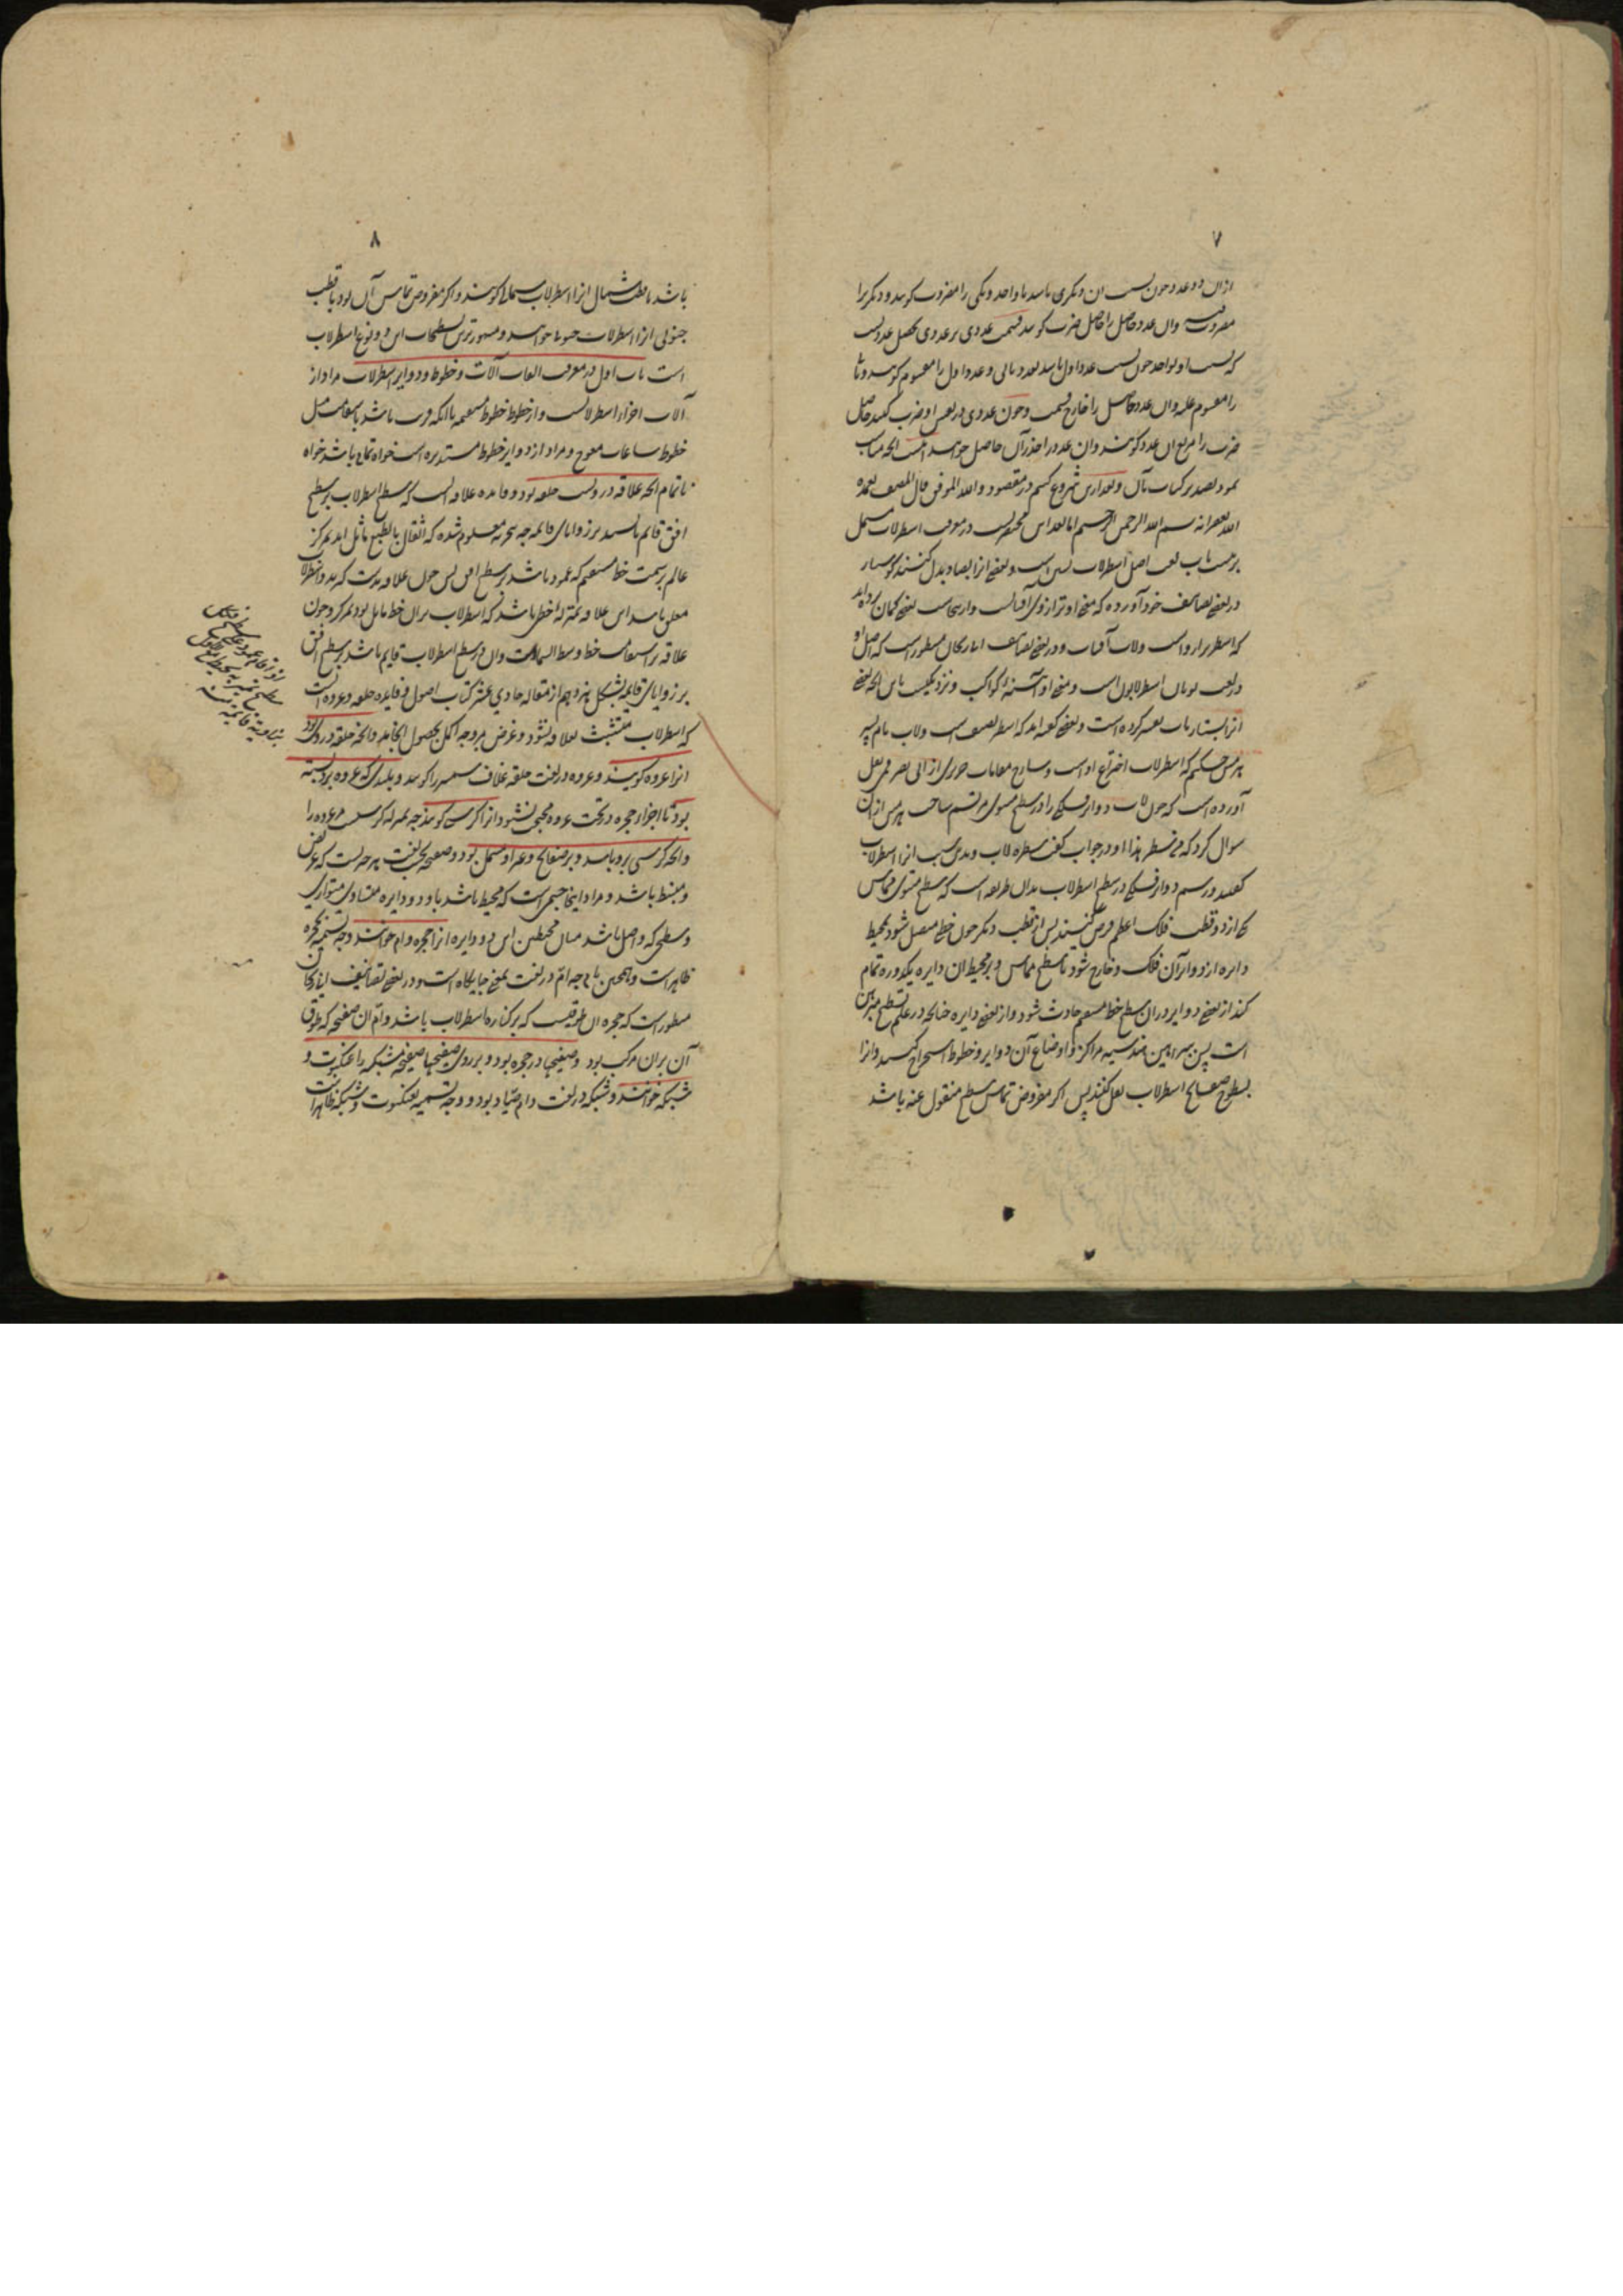 ۷
ازان دو عدد چون نسبت ان دیگری باشد با واحد و یکی را مضروب گویند و دیگر را
مضروب فیه وان عدد حاصل را حاصل ضرب گویند قسمت عددی بر عددی تحصیل عددیست
که نسبت او بواحد چون نسبت عدد اول باشد بعدد ثانی و عدد اول را مقسوم گویند و ثانی
را مقسوم علیه وان عدد حاصل را خارج قسمت و چون عددی در نفس او ضرب کنند حاصل
ضرب را مربع ان عدد گویند وان عدد را جذر آن حاصل خوانند اینست انچه مناسب
نمود تصدیر کتاب بآن و بعد ازین شروع کنیم در مقصود والله الموفق قال المصنف تغمده
الله بغفرانه بسم الله الرحمن الرحیم اما بعد این مختصریست در معرفت اسطرلاب مشتمل
بر بیست باب لغت اصل اسطرلاب بسین است و بعضی انرا بصاد بدل کنند کوشیار
در بعضی تصانیف خود آورده که معنی او ترازوی آفتابست و ازینجاست بعضی گمان برده اند
که اسطر ترازو است و لاب آفتاب و در بعضی تصانیف ابوریحان مسطور است که اصل او
در لغت یونان اسطرلابون است و معنی او آینه کواکب و نزدیکست باین انچه بعضی
انرا بستاره یاب تفسیر کرده است و بعضی گفته اند که اسطر تصنیف است و لاب نام پسر
هرمس حکیم که اسطرلاب اختراع اوست و شارح مقامات حریری از ابی نصر قمی نقل
آورده است که چون لاب دوایر فلکی را در سطح مستوی مرتسم ساخت هرمس ازان
سوال کرد که من سطر هذا او در جواب گفت سطره لاب و بدین سبب انرا اسطرلاب
گفتند و رسم دوایر فلکی در سطح اسطرلاب بدان طریقه است که سطح مستوی مماس
یکی از دو قطب فلک اعظم فرض کنند پس از قطب دیگر چون خطی متصل شود بمحیط
دایره از دوایر آن فلک و خارج شود تا سطح مماس و بر محیط ان دایره یکدوره تمام
کند از بعضی دوایر دران سطح خط مستقیم حادث شود و از بعضی دایره چنانچه در علم تسطیح مبرهن
است پس ببراهین هندسیه مراکز و اوضاع آن دوایر و خطوط استخراج کنند و انرا
بسطوح صفایح اسطرلاب نقل کنند پس اگر مفروض تماس سطح منقول عنه باشد
۸
باشد با قطب شمال انرا اسطرلاب شمالی گویند و اگر مفروض تماس آن بود با قطب
جنوبی انرا اسطرلاب جنوبی خوانند و مشهورترین تسطیحات این دو نوع اسطرلاب
است باب اول در معرفت القاب آلات و خطوط و دوایر اسطرلاب مراد از
آلات اجزاء اسطرلابست و از خطوط خطوط مستقیمه یا انکه قریب باشد باستقامت مثل
خطوط ساعات معوج و مراد از دوایر خطوط مستدیره است خواه تمام باشد خواه
ناتمام انچه علاقه در وست حلقه بود و فایده علاقه انست که سطح اسطرلاب بر سطح
افق قائم باشد بر زوایای قائمه چه بتجربه معلوم شده که اثقال بالطبع مائل اند بمرکز
عالم بر سمت خط مستقیم که عمود باشد بر سطح افق پس چون علاقه بدست گیرند و اسطرلاب
معلق باشد این علاقه بمنزله خطی باشد که اسطرلاب بران خط مایل بود بمرکز و چون
علاقه بر استقامت خط وسط السماست وان در سطح اسطرلاب قایم باشد بر سطح افق
بر زوایای قایمه بشکل هژدهم از مقاله حادی عشر کتاب اصول و فایده حلقه و عروه انست
که اسطرلاب متشبث بعلاقه نشود و غرض بر وجه اکمل بحصول انجامد وانچه حلقه در وی بود
انرا عروه گویند و عروه در لغت حلقه غلاف شمشیر را گویند و بلندی که عروه برو بسته
بود تا اجزاء حجره در تحت عروه مختفی نشود انرا کرسی گویند چه بمنزله کرسیست مر عروه را
وانچه کرسی برو باشد و بر صفایح و غیر او مشتمل بود و صفحه بحسب لغت هر چیست که عریض
و منبسط باشد و مراد اینجا جسمی است که محیط باشد باو دو دایره متساوی متوازی
و سطحی که واصل باشد میان محیطین این دو دایره انرا حجره و ام خوانند و وجه تسمیه بحجره
ظاهر است و همچنین بام چه ام در لغت بمعنی جایگاه است و در بعضی تصانیف ابوریحان
مسطور است که حجره ان طوقیست که بر کناره اسطرلاب باشد و ام ان صفحه که طوق
آن بران مرکب بود و صفیحها در حجره بود و بر روی صفیحها صفیحه مشبکه را عنکبوت و
شبکه خوانند و شبکه در لغت دام صیاد بود و وجه تسمیه بعنکبوت و شبکه ظاهر است